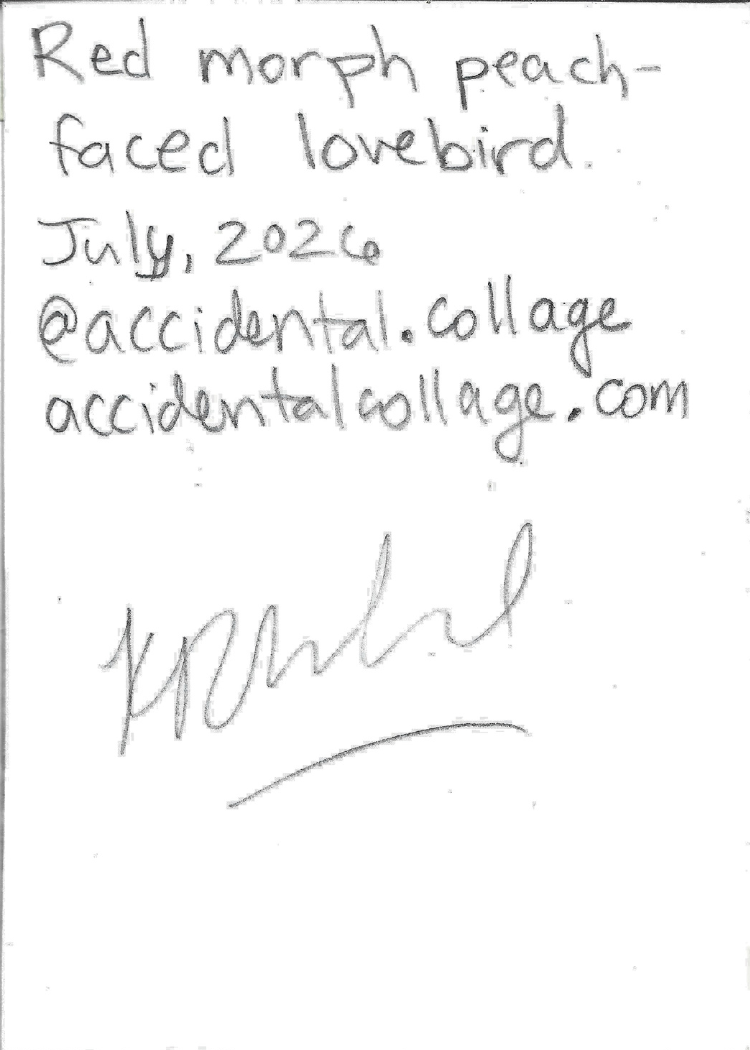 Red morph peach-
faced lovebird.
July, 2026
@accidental.collage
accidentalcollage.com